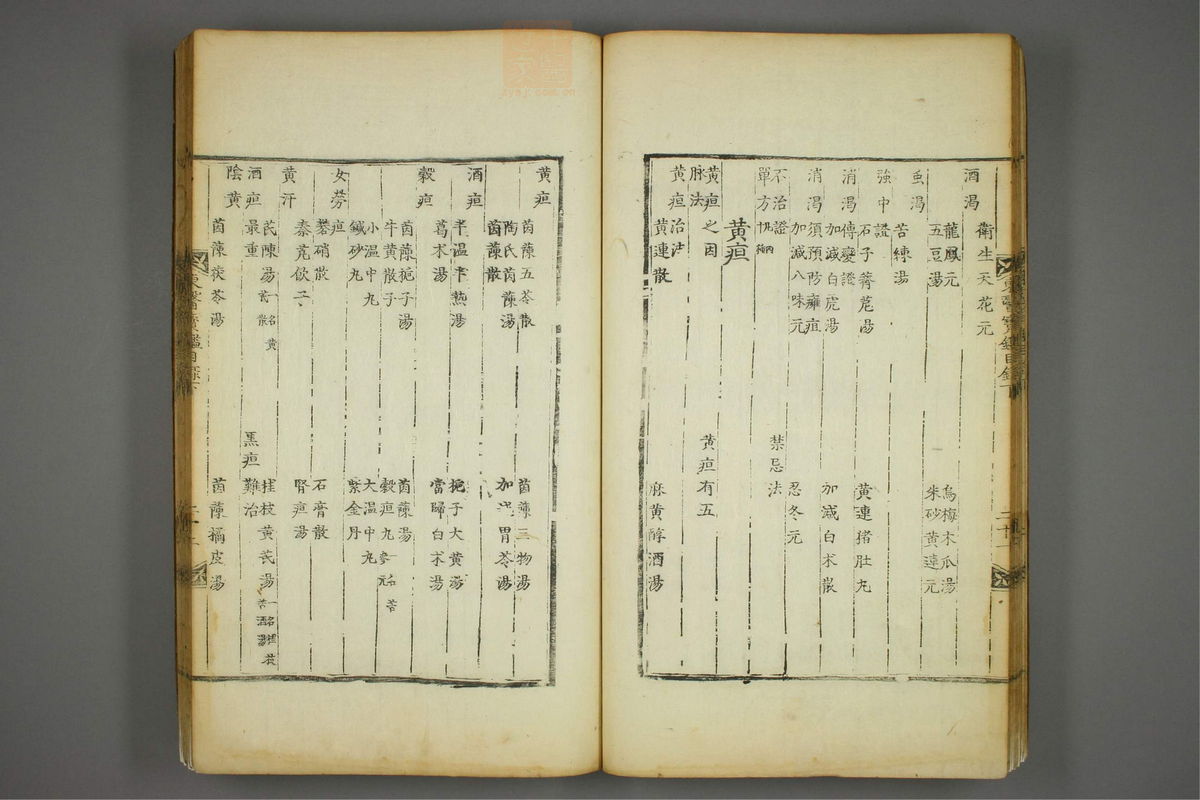 衛生天花元
酒渴
龍鳳元
烏梅木瓜湯
五豆湯
朱砂黃連元
虫渴
苦練湯
強中證
石子薺苨湯
黃連猪肚丸
消渴傳變證
加減白虎湯
加減白朮散
消渴須預防癰疽
加減八味元
忍冬元
不治證
禁忌法
單方
黃疸
黃疸之因
黃疸有五
脉法
黃疸治法
黃連散
麻黃醇酒湯
東醫寶鑑目錄下
黃疸
茵蔯五苓散
茵蔯三物湯
陶氏茵蔯湯
加減胃苓湯
茵蔯散
酒疸
半溫半熱湯
梔子大黃湯
葛朮湯
當歸白朮湯
穀疸
茵蔯梔子湯
茵蔯湯
牛黃散子
穀疸丸一名苦參元
小溫中丸
大溫中丸
鍼砂丸
紫金丹
女勞疸
礬硝散
石膏散
秦艽飲子
腎疸湯
黃汗
芪陳湯一名黃芪散
桂枝黃芪湯一名桂枝苦酒湯
酒疸最重
黑疸難治
陰黃
茵蔯茯苓湯
茵蔯橘皮湯
東醫寶鑑目錄下